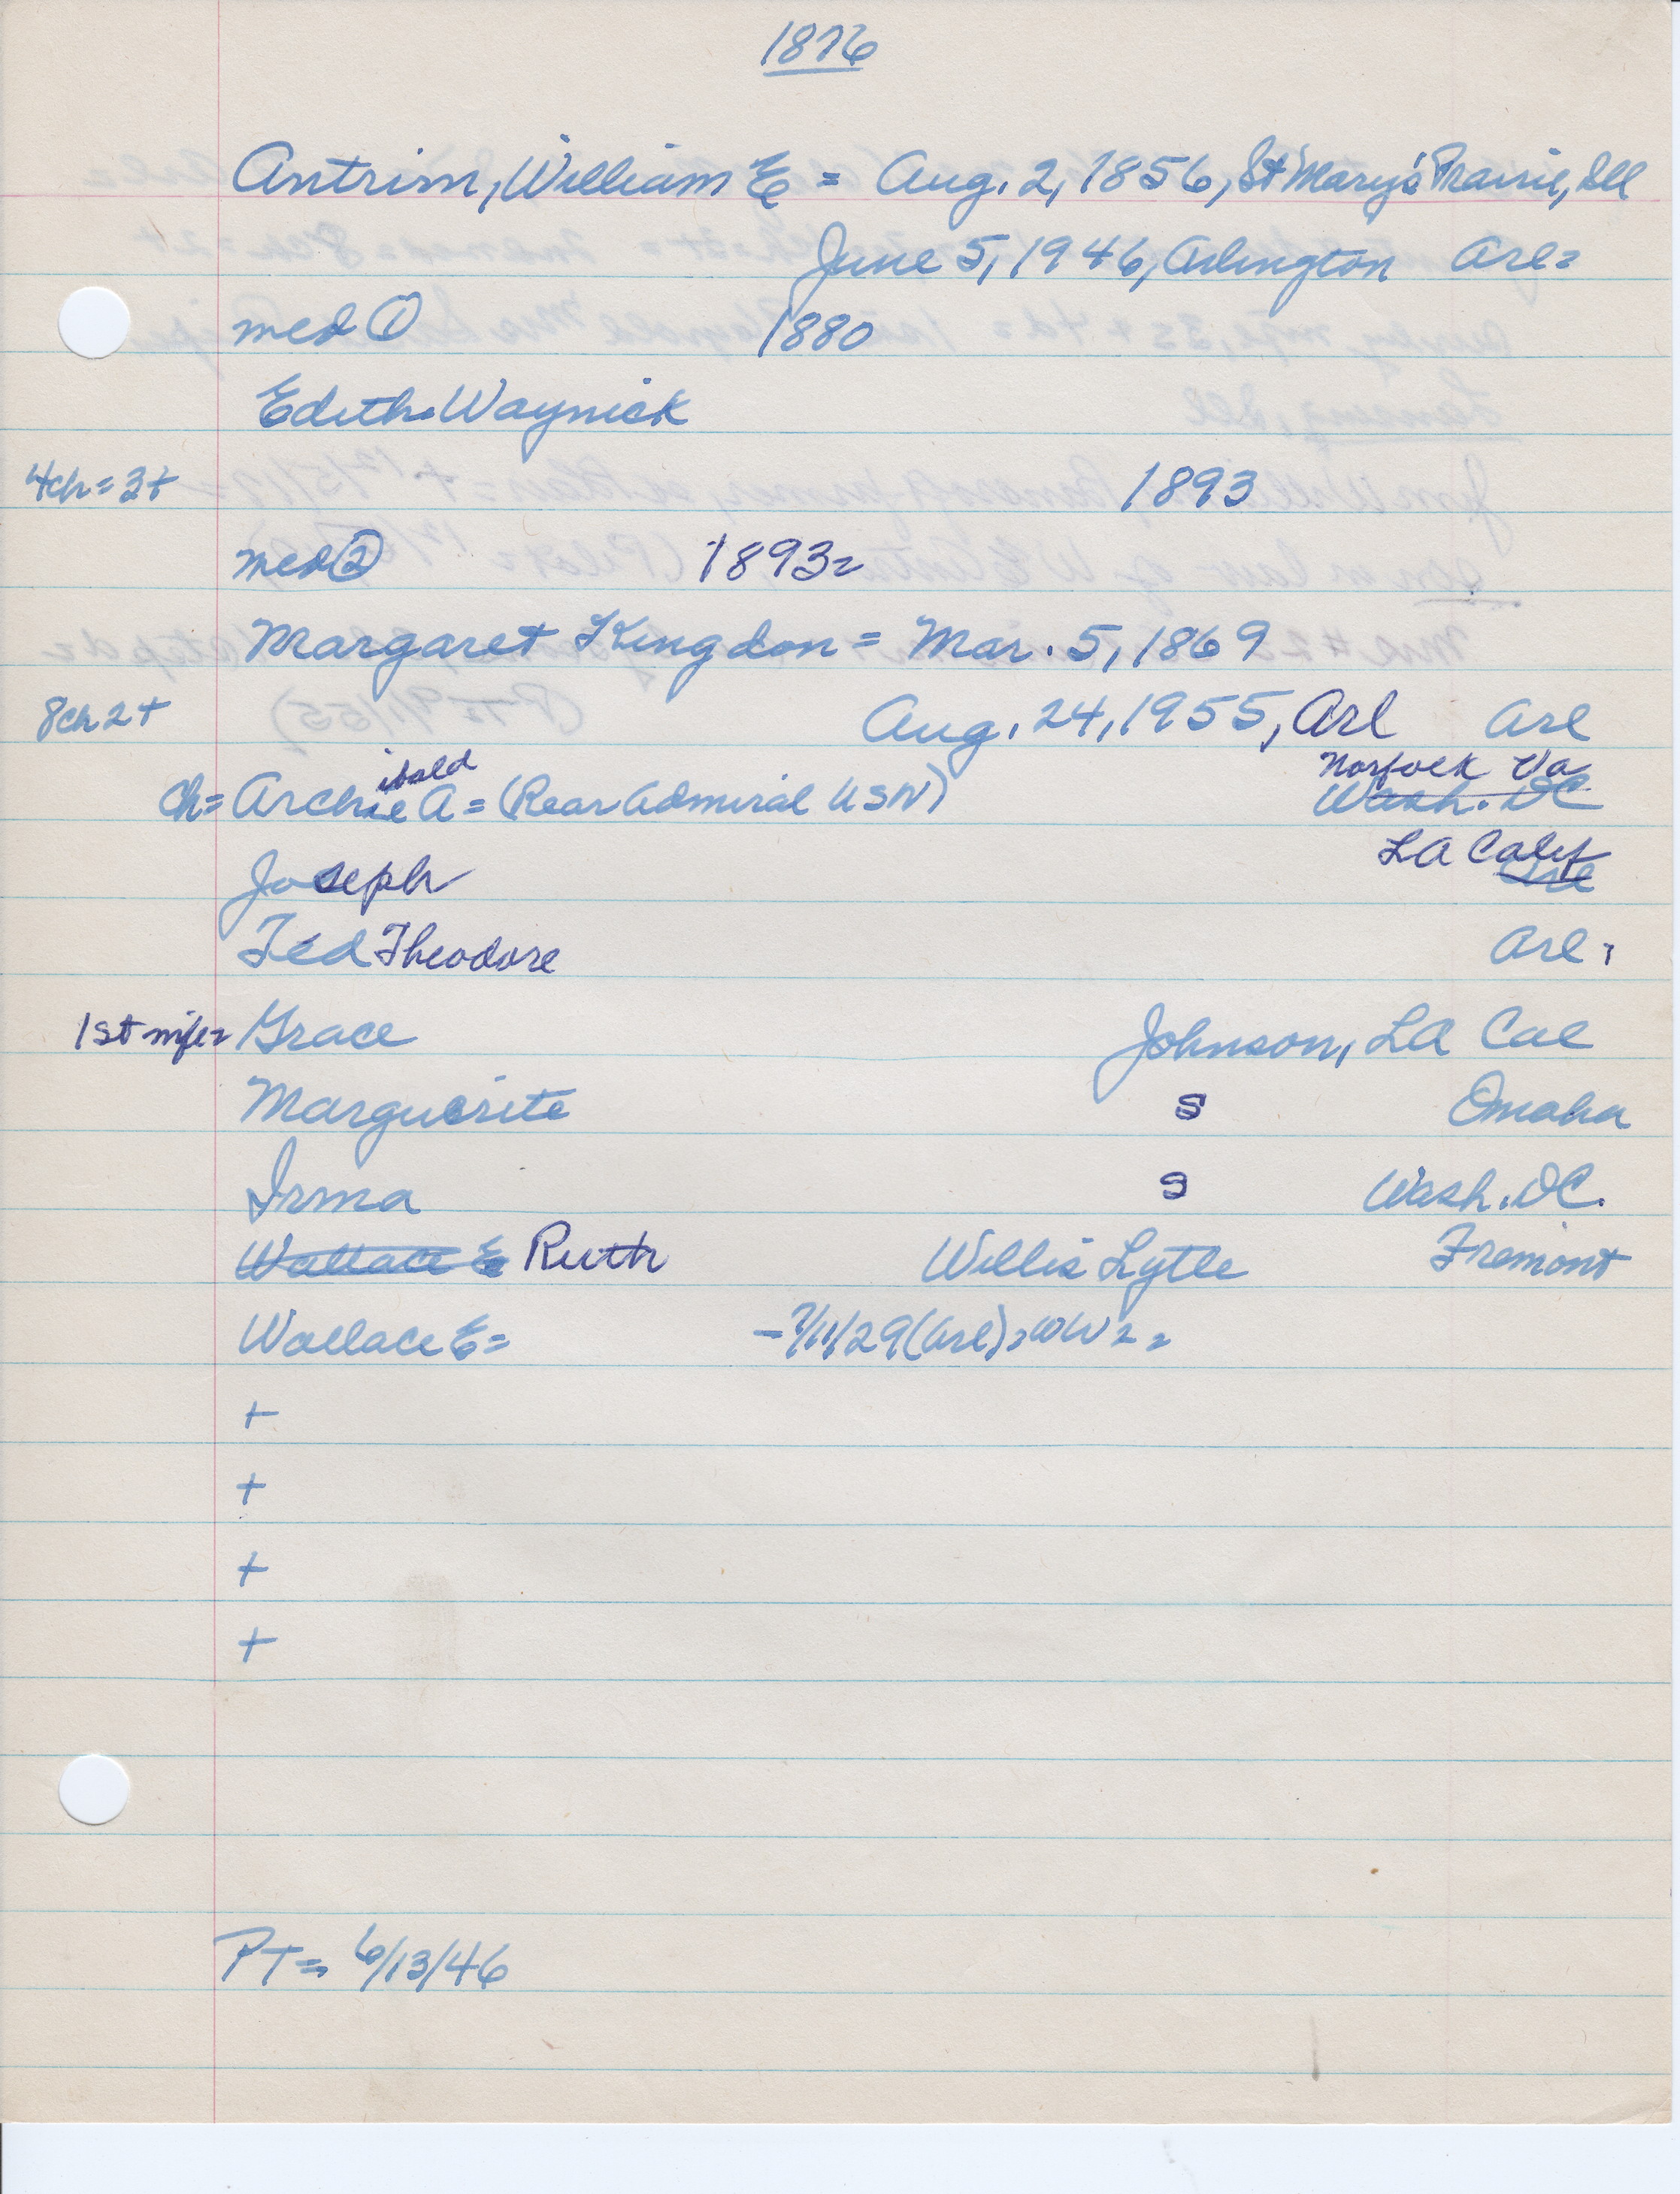 1876
Antrim, William E = Aug. 2, 1856, St Mary's Prairie, Ill
June 5, 1946, Arlington Arl=
med ① 1880
Edith Waynick
4ch=3+ 1893
med ② 1893=
Margaret Kingdon = Mar. 5, 1869
8ch 2+ Aug. 24, 1955, Arl Arl
ibald Norfolk Va
ch= Archie A = (Rear Admiral USN) Wash. DC
LA Calif
Joseph Arl
Ted Theodore Arl
1st wife= Grace Johnson, LA Cal
Marguerite S Omaha
Irma S Wash. DC.
Wallace E Ruth Willis Lytle Fremont
Wallace E= -7/11/29 (Arl) = WW2=
+
+
+
+
PT= 6/13/46